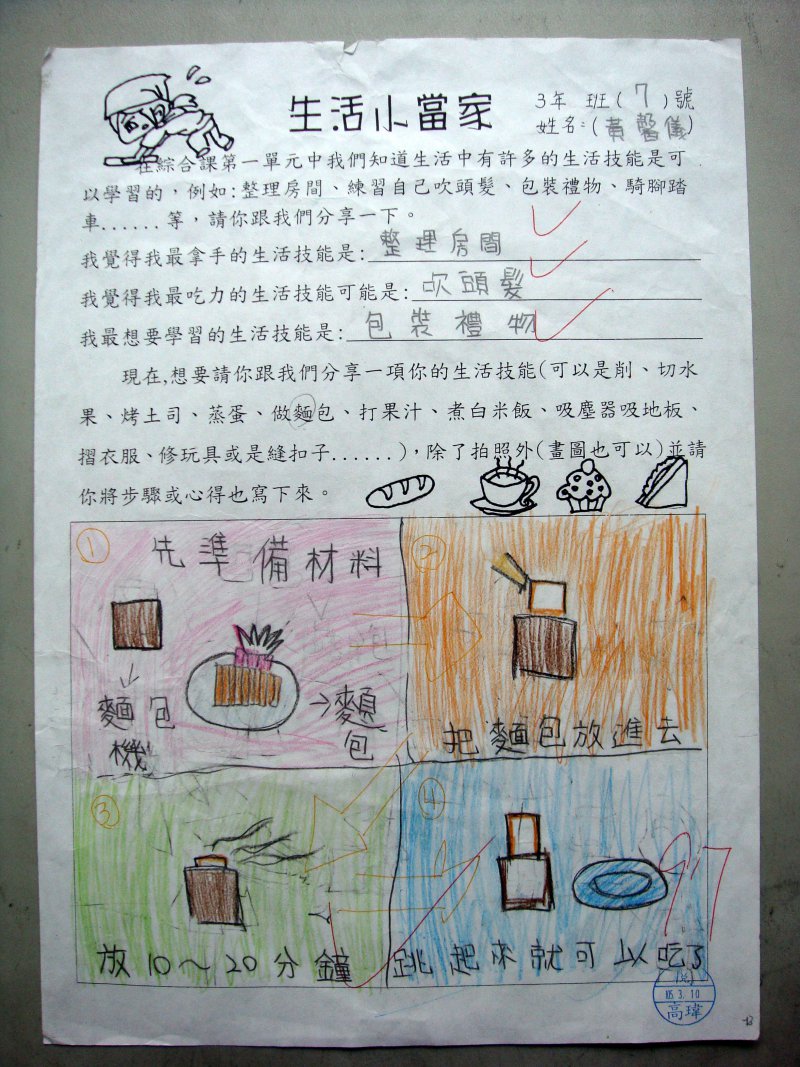 生活小當家
3年 班(7)號
姓名:(黃馨儀)
在綜合課第一單元中我們知道生活中有許多的生活技能是可
以學習的，例如:整理房間、練習自己吹頭髮、包裝禮物、騎腳踏
車......等，請你跟我們分享一下。
我覺得我最拿手的生活技能是:整理房間
我覺得我最吃力的生活技能可能是:吹頭髮
我最想要學習的生活技能是:包裝禮物
現在,想要請你跟我們分享一項你的生活技能(可以是削、切水
果、烤土司、蒸蛋、做麵包、打果汁、煮白米飯、吸塵器吸地板、
摺衣服、修玩具或是縫扣子......)，除了拍照外(畫圖也可以)並請
你將步驟或心得也寫下來。
①
先準備材料
麵包
機
→麵
包
②
把麵包放進去
③
放10～20分鐘
④
跳起來就可以吃了
97
3.10
高瑋